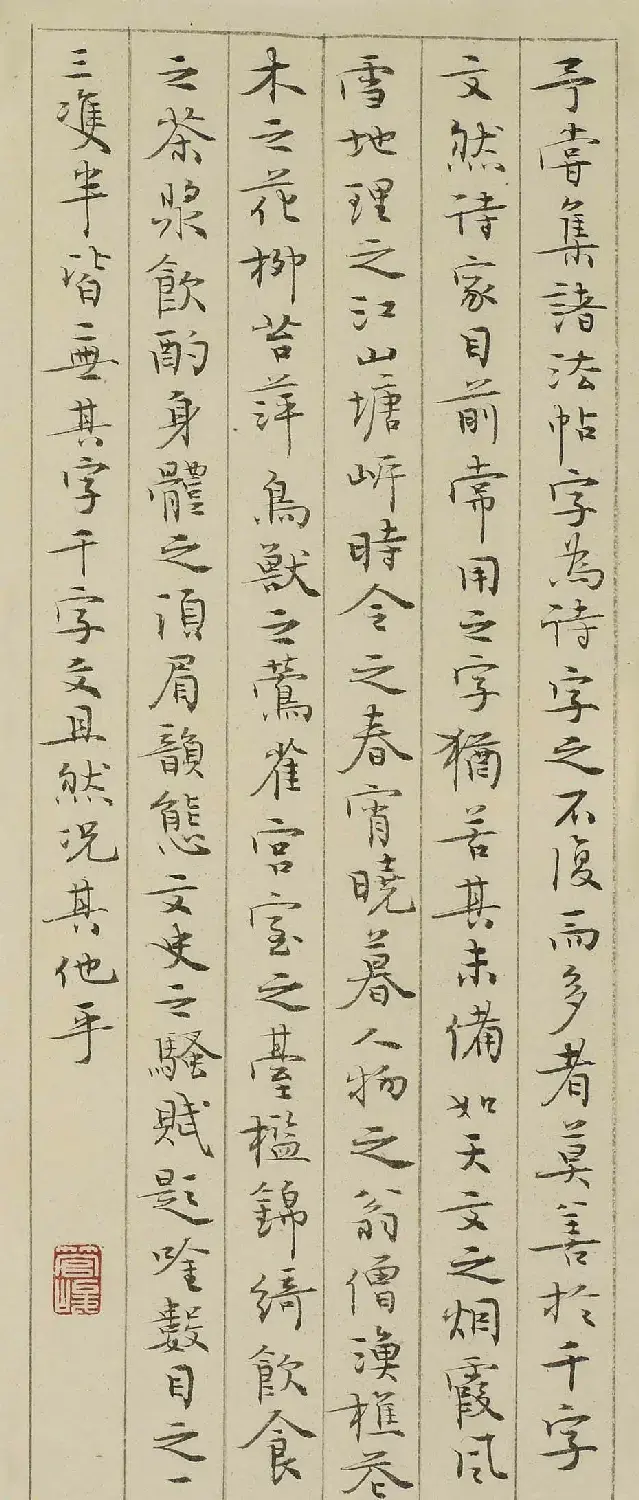 予嘗集諸法帖字為詩字之不復而多者莫善於千字
文然詩家目前常用之字猶苦其未備如天文之烟霞風
雪地理之江山塘岍時令之春宵曉暮人物之翁僧漁樵花
木之花柳苔萍鳥獸之鶯雀宮室之臺檻錦綺飲食
之茶漿飲酌身體之頂眉韻態文史之騷賦題唫數目之一
三雙半皆無其字千字文且然况其他乎